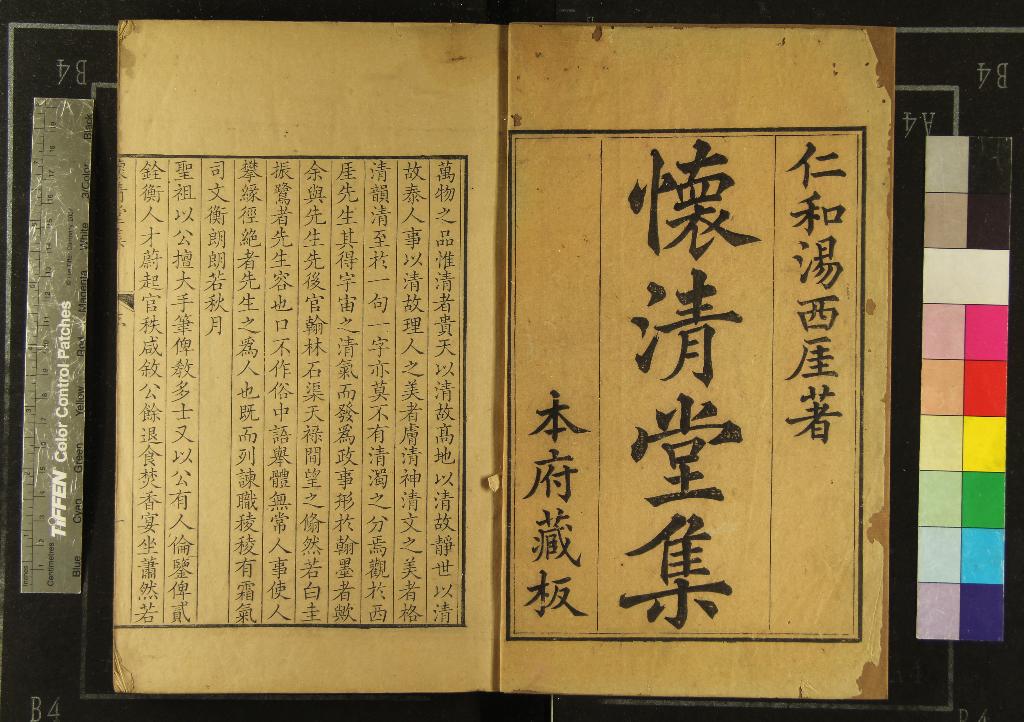 仁和湯西厓著
懷清堂集
本府藏板
萬物之品惟清者貴天以清故髙地以清故靜世以清
故泰人事以清故理人之美者膚清神清文之美者格
清韻清至於一句一字亦莫不有清濁之分焉觀於西
厓先生其得宇宙之清氣而發爲政事形於翰墨者歟
余與先生先後官翰林石渠天祿間望之翛然若白圭
振鷺者先生容也口不作俗中語舉體無常人事使人
攀緣徑絶者先生之爲人也既而列諫職稜稜有霜氣
司文衡朗朗若秋月
聖祖以公擅大手筆俾敎多士又以公有人倫鑒俾貳
銓衡人才蔚起官秩咸敘公餘退食焚香宴坐蕭然若
B4
B4
A4
B4
TIFFEN Color Control Patches
Centimetres
Inches
Blue
Cyan
Green
Yellow
Red
Magenta
White
3/Color
Black